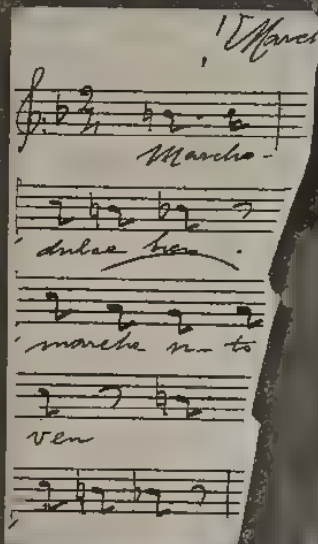 March
Marcha-
dulce bien
marcha n- to
ven